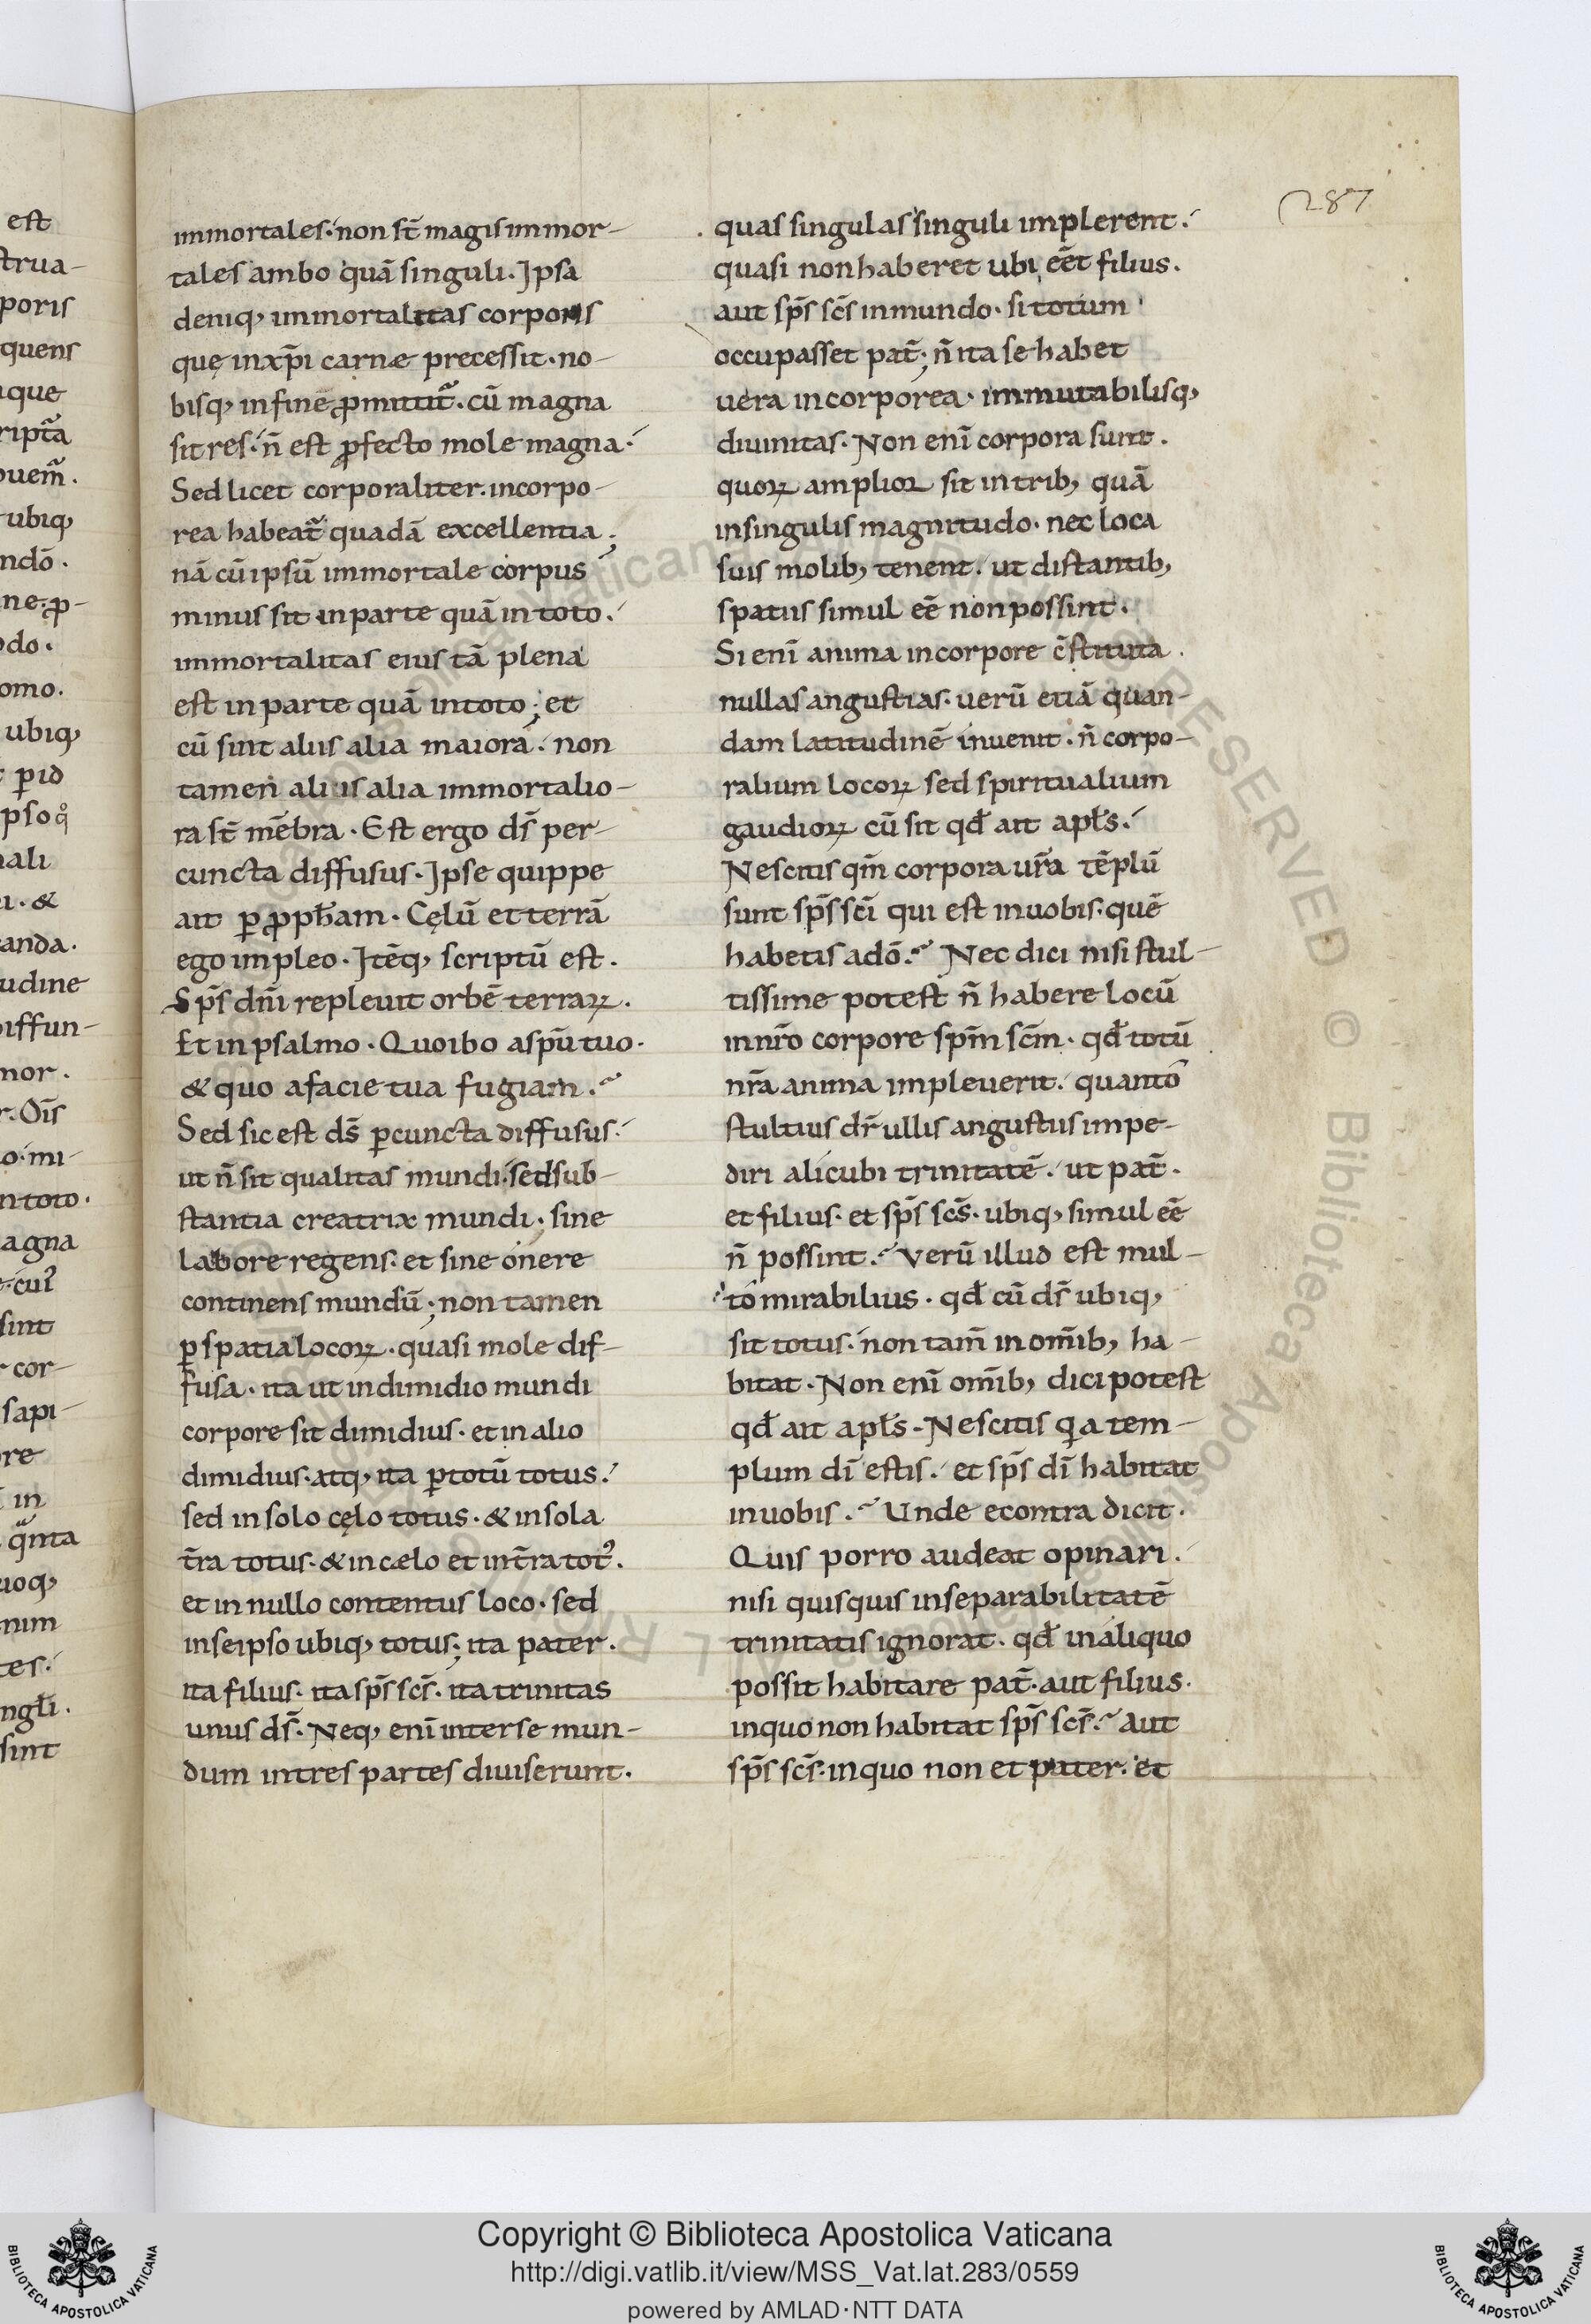 est
strua-
poris
quens
ique
ript̃a
ouem̃.
ubiq,
ndō.
ne. ꝓ-
odo.
omo.
ubiq,
ꝑid
ipso
ali
ı. &
anda.
udine
diffun-
nor.
r. Oīs
o. mi-
n toto.
agna
cui
sint
cor-
sapi-
re
in
qnta
uoq,
nim
tes.
sint
immortales. non st̄ magis immor-
tales ambo quā singuli. Ipsa
deniq, immortalitas corporis
quę in xp̄i carne precessit. no-
bisq, in finē ꝓmittit᷑. cū magna
sit res. n̄ est ꝓfecto mole magna.
Sed licet corporaliter. incorpo-
rea habeat᷑ quadā excellentia;
nā cū ipsū immortale corpus
minus sit in parte quā in toto.
immortalitas eius tā plena
est in parte quā in toto; et
cū sint aliis alia maiora. non
tamen aliis alia immortalio-
ra st̄ mēbra. Est ergo ds̄ per-
cuncta diffusus. Ipse quippe
ait ꝑ ꝓpħam. Cęlū et terrā
ego impleo. Itēq, scriptū est.
Sp̄s dn̄i repleuit orbē terraꝝ.
Et in psalmo. Quo ibo a sp̄u tuo.
& quo a facie tua fugiam.
Sed sic est ds̄ ꝑcuncta diffusus.
ut n̄ sit qualitas mundi. sed sub-
stantia creatrix mundi. sine
labore regens. et sine onere
continens mundū; non tamen
ꝑ spatia locoꝝ. quasi mole dif-
fusa. ita ut in dimidio mundi
corpore sit dimidius. et in alio
dimidius. atq, ita ꝑ totū totus.
sed in solo cęlo totus. & in sola
t̄ra totus. & in cælo et in t̄ra totꝰ.
et in nullo contentus loco. sed
in seipso ubiq, totus; ita pater.
ita filius. ita sp̄s scs̄. ita trinitas
unus ds̄. Neq, enī inter se mun-
dum in tres partes diuiserunt.
287
quas singulas singuli implerent.
quasi non haberet ubi eēt filius.
aut sp̄s scs̄ in mundo. si totum
occupasset pat̄; n̄ ita se habet
uera incorporea. immutabilisq,
diuinitas. Non enī corpora sunt.
quoꝝ amplior sit in trib, quā
in singulis magnitudo. nec loca
suis molib, tenent. ut distantib,
spatiis simul eē non possint.
Si enī anima in corpore c̄stituta.
nullas angustias. uerū etiā quan-
dam latitudinē inuenit. n̄ corpo-
ralium locoꝝ sed spiritualium
gaudioꝝ cū sit qđ ait apl̄s.
Nescitis qm̄ corpora ur̄a tēplū
sunt sp̄s sc̄i qui est in uobis. quē
habetis a dō. Nec dici nisi stul-
tissime potest n̄ habere locū
in nr̄o corpore sp̄m sc̄m. qđ totū
nr̄a anima impleuerit. quanto
stultius dr̄ ullis angustiis impe-
diri alicubi trinitatē. ut pat̄.
et filius. et sp̄s scs̄. ubiq, simul eē
n̄ possint. Verū illud est mul-
to mirabilius. qđ cū ds̄ ubiq,
sit totus. non tam̄ in om̄ib, ha-
bitat. Non enī om̄ib, dici potest
qđ ait apl̄s. Nescitis qa tem-
plum dī estis. et sp̄s dī habitat
in uobis. Unde econtra dicit.
Quis porro audeat opinari.
nisi quisquis inseparabilitatē
trinitatis ignorat. qđ in aliquo
possit habitare pat̄. aut filius.
in quo non habitat sp̄s scs̄. Aut
sp̄s scs̄. in quo non et pater. et
Copyright © Biblioteca Apostolica Vaticana
http://digi.vatlib.it/view/MSS_Vat.lat.283/0559
powered by AMLAD·NTT DATA
BIBLIOTECA APOSTOLICA VATICANA
BIBLIOTECA APOSTOLICA VATICANA